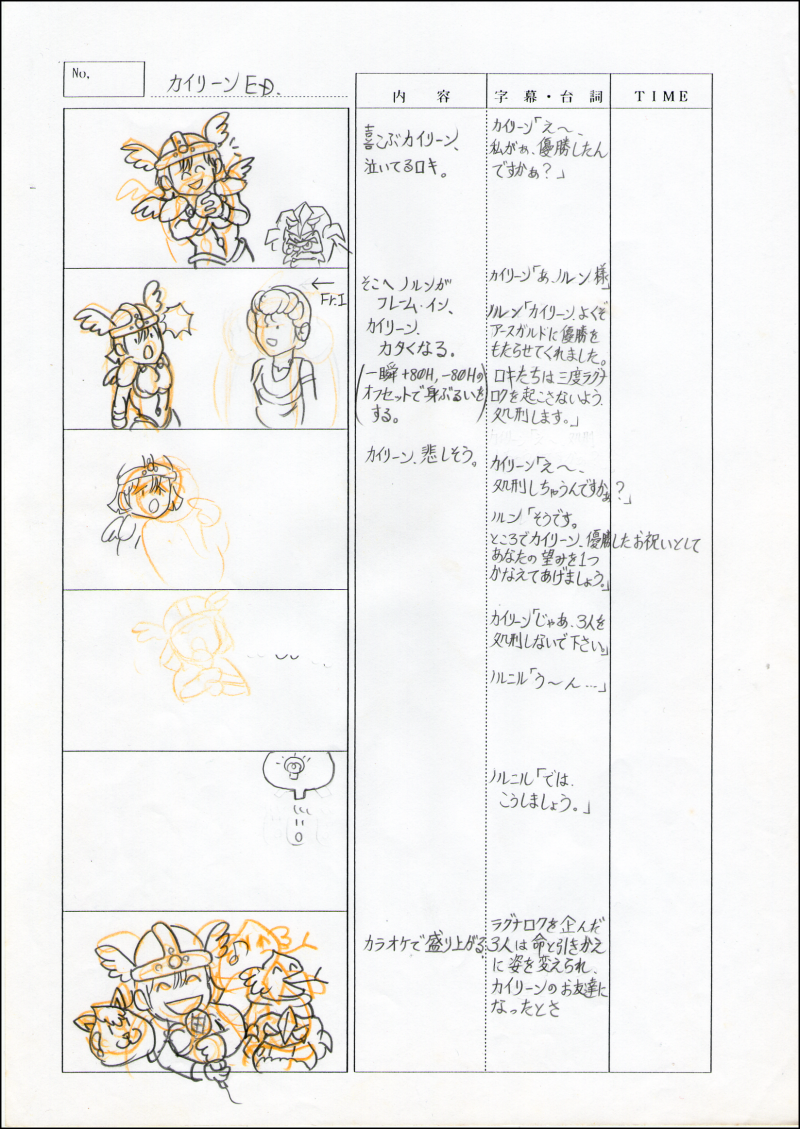 No.
カイリーン E.D.
内容
字幕・台詞
TIME
喜こぶカイリーン、
泣いてるロキ。
カイリーン「え〜、
私がぁ、優勝したん
ですかぁ？」
←
Fr.I
そこへノルンが
フレーム・イン、
カイリーン、
カタくなる。
(一瞬+80H, -80Hの
オフセットで身ぶるいを
する。)
カイリーン「あ、ノルン様」
ノルン「カイリーン、よくぞ
アースガルドに優勝を
もたらせてくれました。
ロキたちは三度ラグナ
ロクを起こさないよう、
処刑します。」
カイリーン、悲しそう。
カイリーン「え〜、
処刑しちゃうんですかぁ？」
ノルン「そうです。
ところでカイリーン、優勝したお祝いとして
あなたの望みを1つ
かなえてあげましょう。」
カイリーン「じゃあ、3人を
処刑しないで下さい。」
ノルニル「う〜ん…」
ノルニル「では、
こうしましょう。」
カラオケで盛り上がる。
ラグナロクを企んだ
3人は命と引きかえ
に姿を変えられ、
カイリーンのお友達に
なったとさ